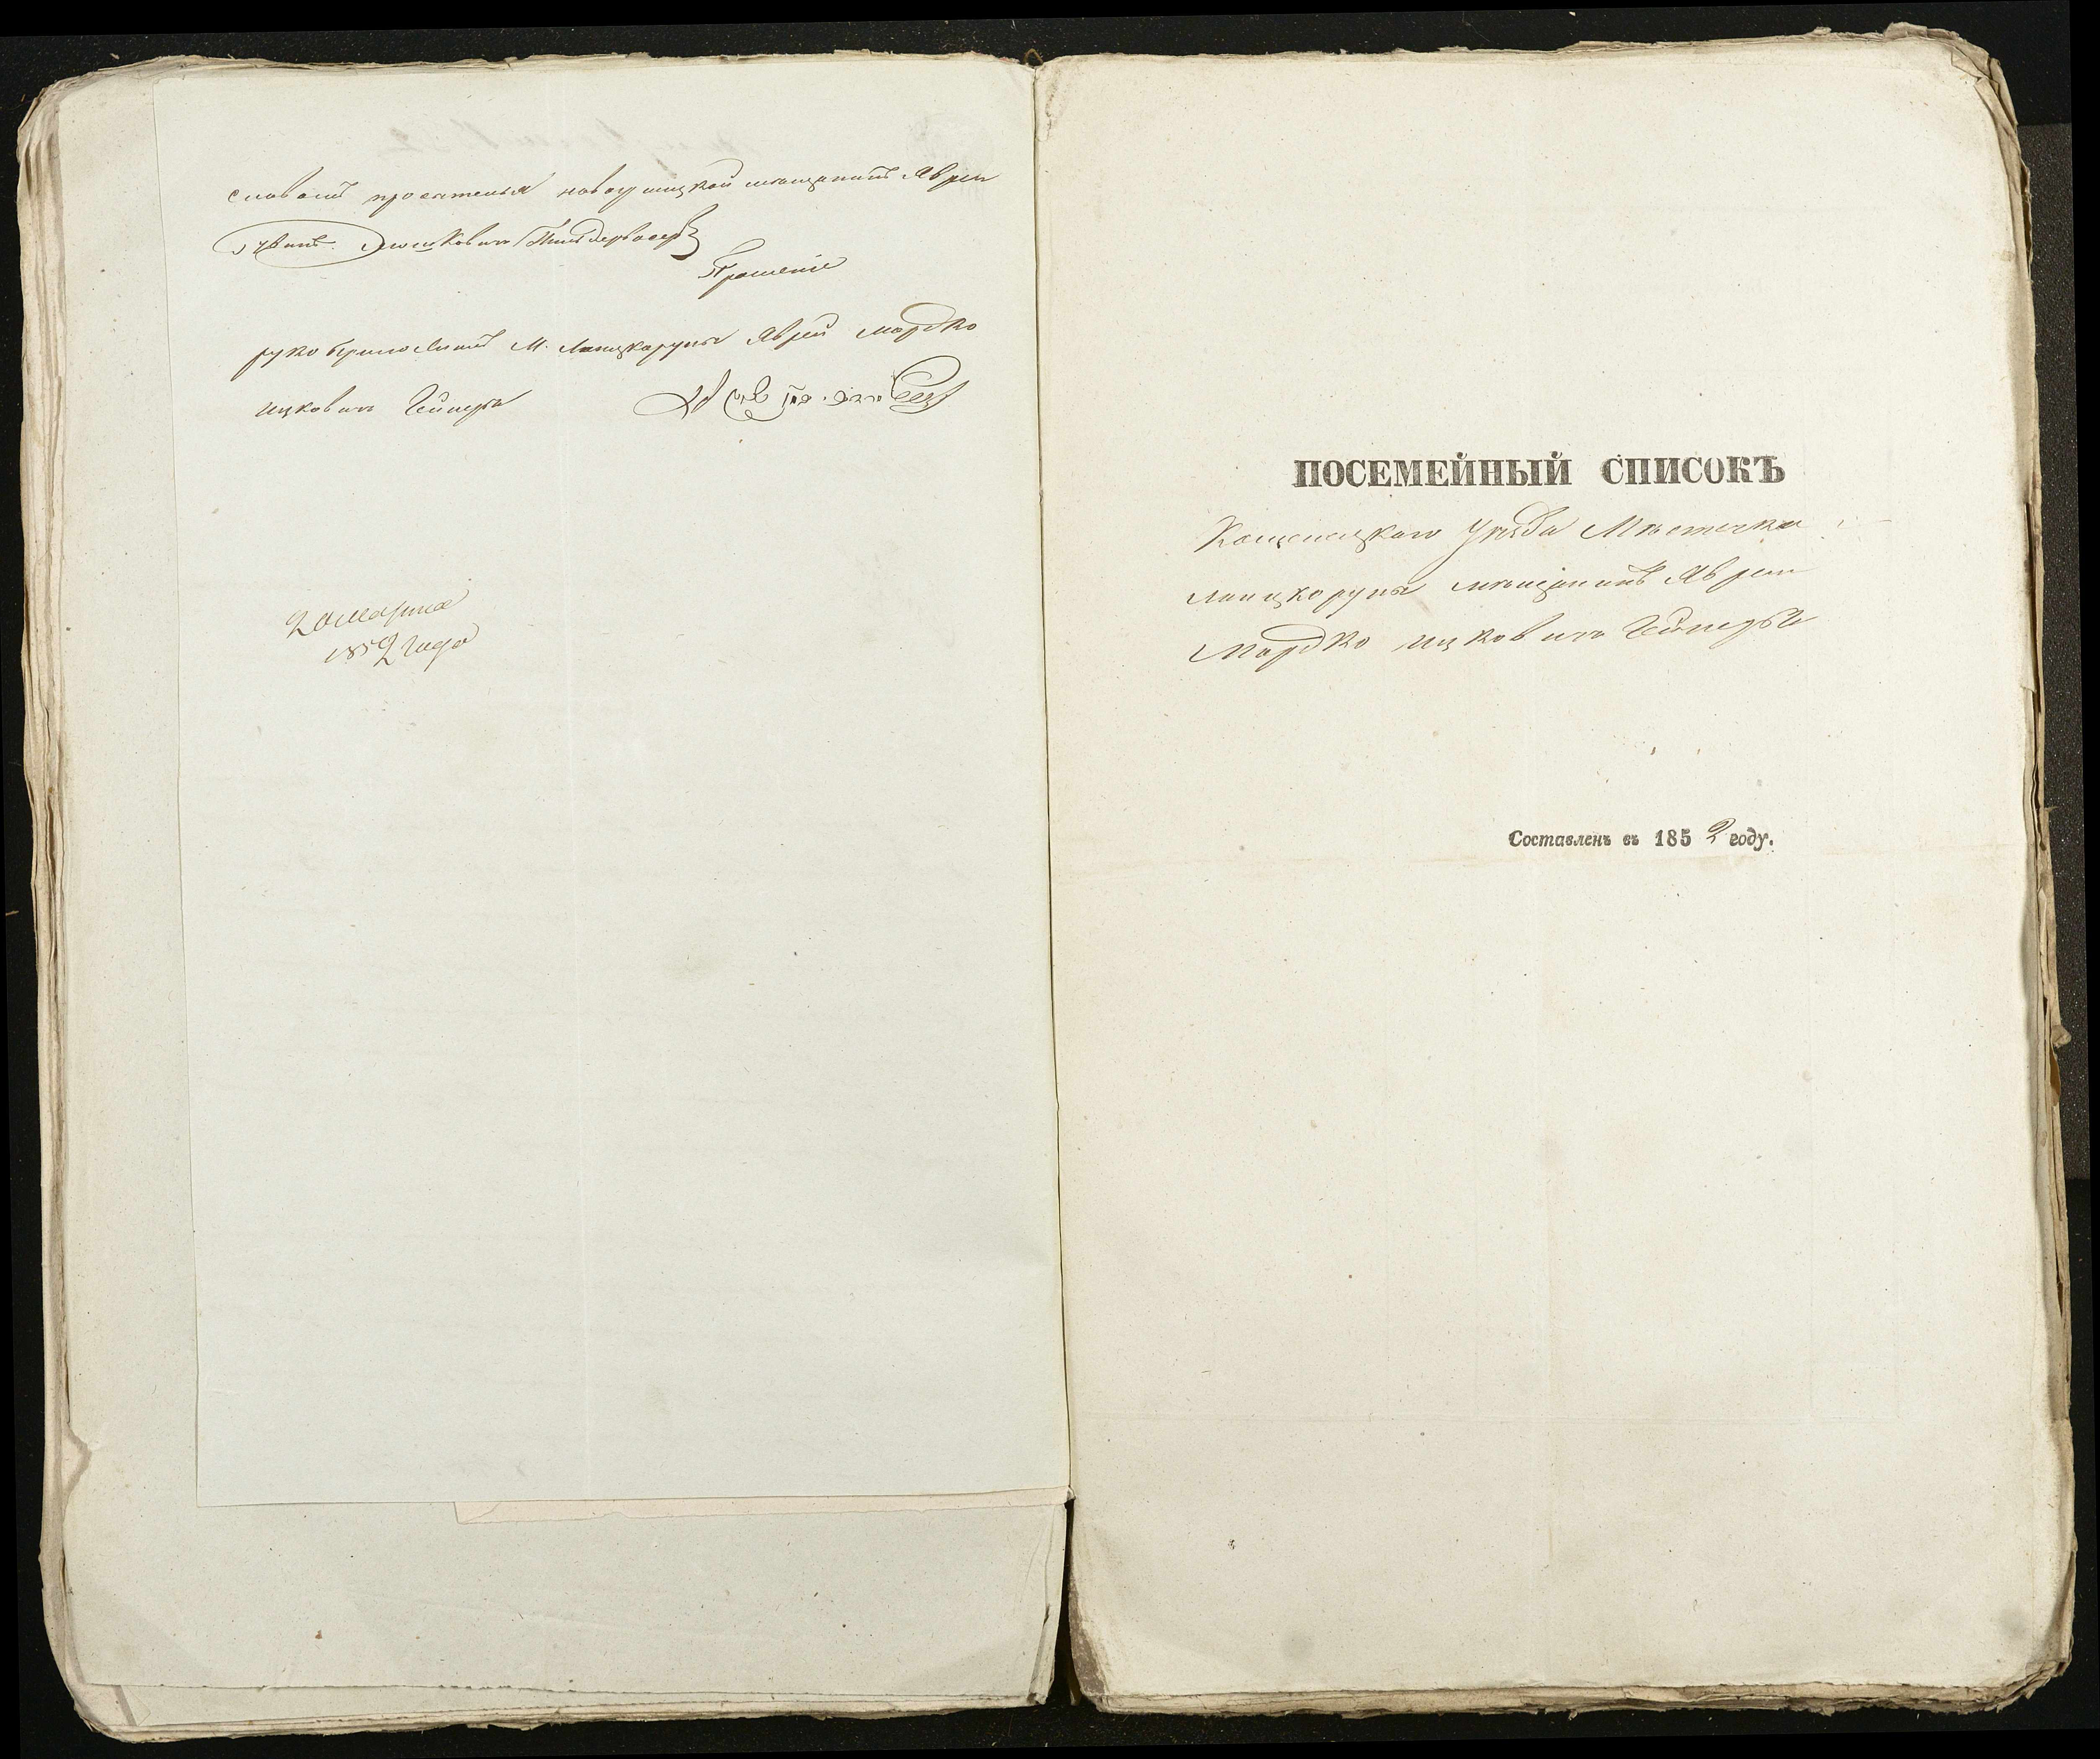 словамъ просителя новоушицкой мещанинъ Яврей
Мошковичъ
Прошеніе
руко приложилъ М. Ланцкаруны Яврей Мордко
Ицковичъ
20 марта
1852 года
ПОСЕМЕЙНЫЙ СПИСОКЪ
Каменецкаго Уѣзда Мѣстечка
Ланцкоруны мещанинъ Яврей
Мордко Ицковичъ
Составленъ въ 1852 году.